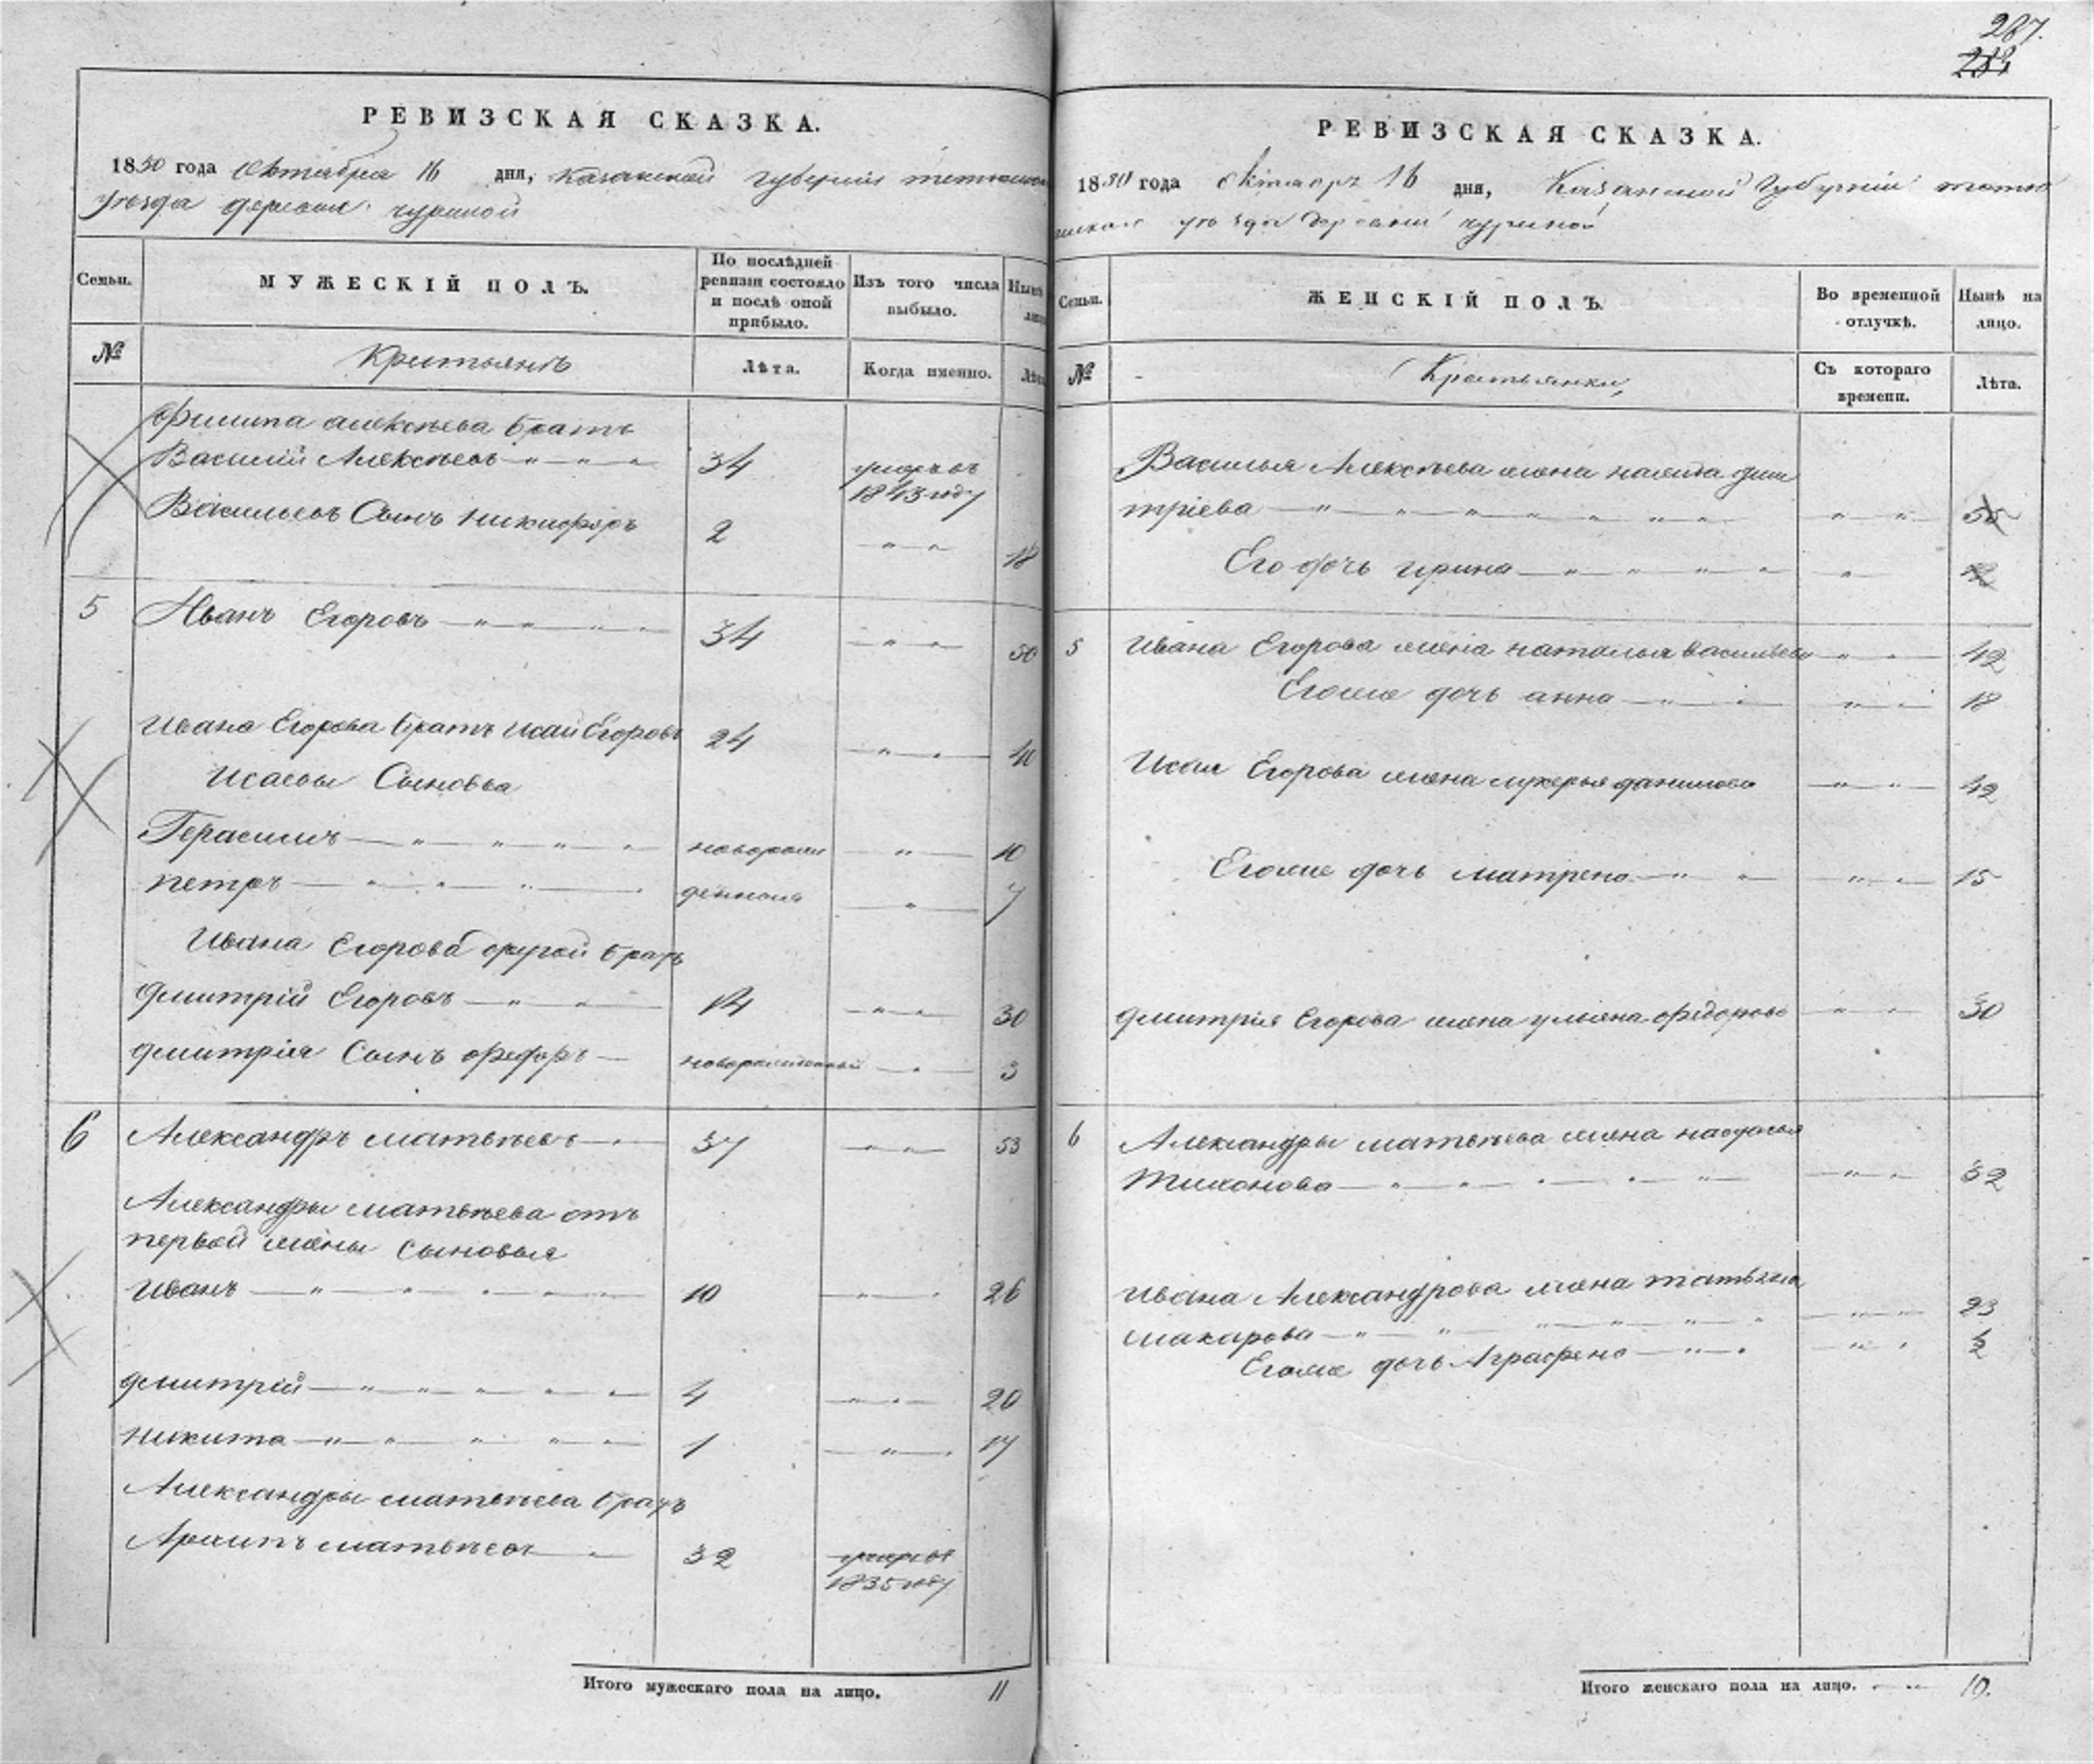 287.
РЕВИЗСКАЯ СКАЗКА.
1850 года Октября 16 дня, Казанской губернии
уезда деревни чуриной
Семьи.
МУЖЕСКІЙ ПОЛЪ.
По послѣдней ревизіи состояло и послѣ оной прибыло.
Изъ того числа выбыло.
Нынѣ
№
Крестьянъ
Лѣта.
Когда именно.
Лѣта
Филипа алексѣева братъ
Василій Алексѣевъ 34
1843 году
Васильевъ Сынъ никифоръ 2 18
5 Иванъ Егоровъ 34 50
Ивана Егорова братъ исай Егоровъ 24 40
Исаевы Сыновья
Герасимъ 10
петръ 7
Ивана Егорова другой братъ
Дмитрій Егоровъ 14 30
дмитрія Сынъ новорожденный 3
6 Александръ матвѣевъ 37 53
Александры матвѣева отъ
первой жены сыновья
Иванъ 10 26
дмитрій 4 20
никита 1 17
Александры матвѣева братъ
матвѣевъ 32
1835 году
Итого мужескаго пола на лицо. 11
РЕВИЗСКАЯ СКАЗКА.
1850 года октября 16 дня, Казанской Губерніи
уѣзда деревни чуриной
Семьи.
ЖЕНСКІЙ ПОЛЪ.
Во временной отлучкѣ.
Нынѣ на лицо.
№
Крестьянки,
Съ котораго времени.
Лѣта.
Василья Алексѣева жена
тріева
Его дочь ирина
5 Ивана Егорова жена наталья васильева 42
Егоже дочь анна 18
Исая Егорова жена лукерья данилова 42
Егоже дочь матрена 15
дмитрія Егорова жена ульяна 30
6 Александры матвѣева жена настасья
тихонова 52
Ивана Александрова жена татьяна
макарова 23
Егоже дочь Аграфена
Итого женскаго пола на лицо. 10.